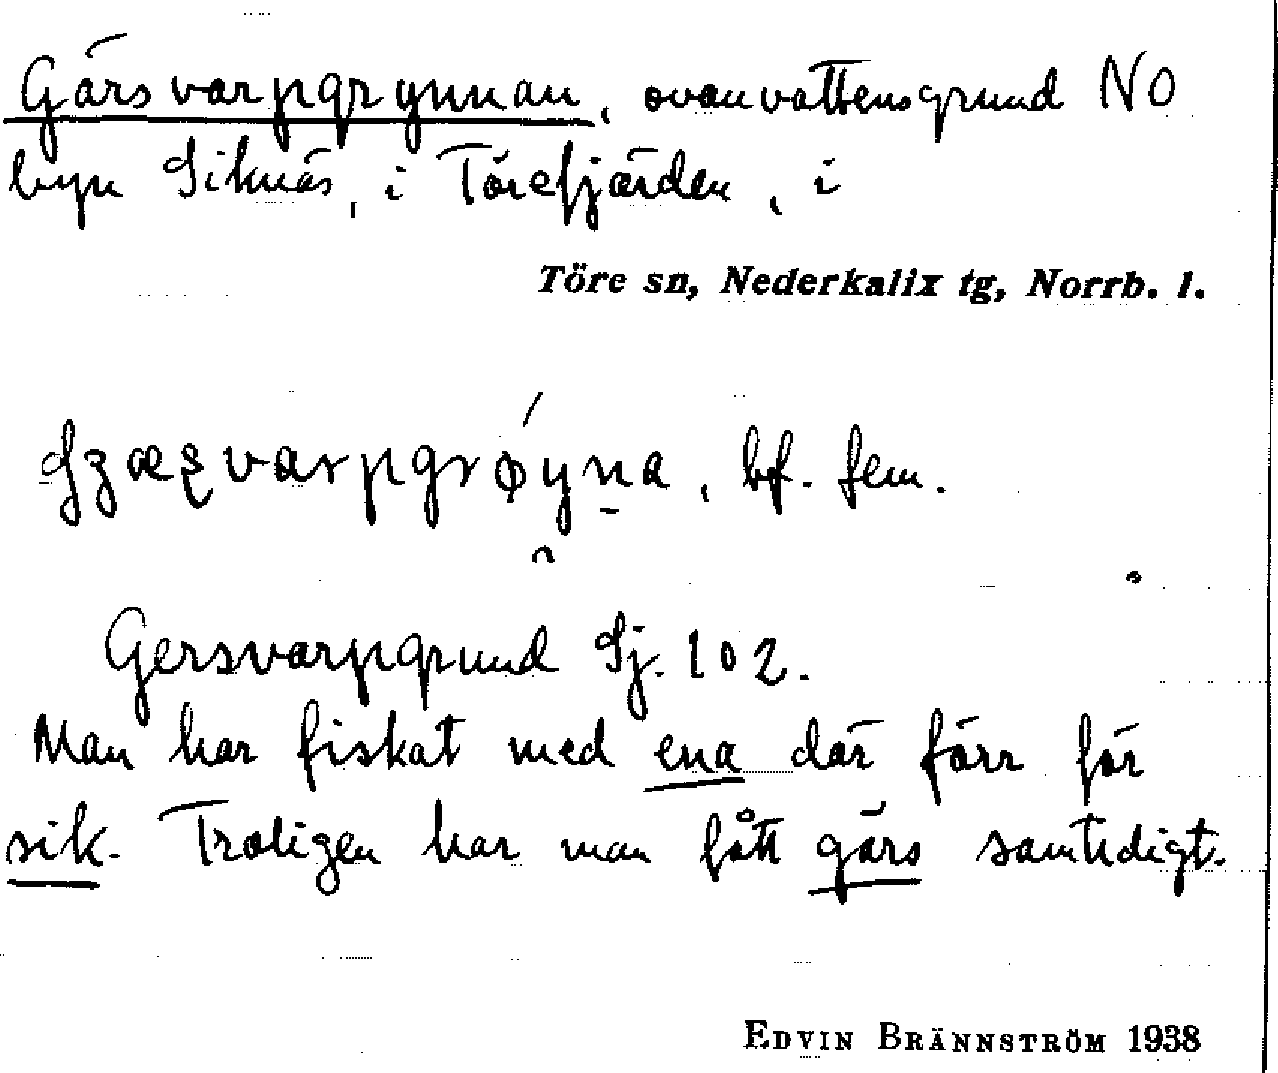 Gärsvarpgrynnan, ovanvattensgrund NO
byn Siknäs, i Törefjärden, i
Töre sn, Nederkalix tg, Norrb. l.
bf. fem.
Gersvarpgrund Sj. 102.
Man har fiskat med ena där förr för
sik. Troligen har man fått gärs samtidigt.
EDVIN BRÄNNSTRÖM 1938